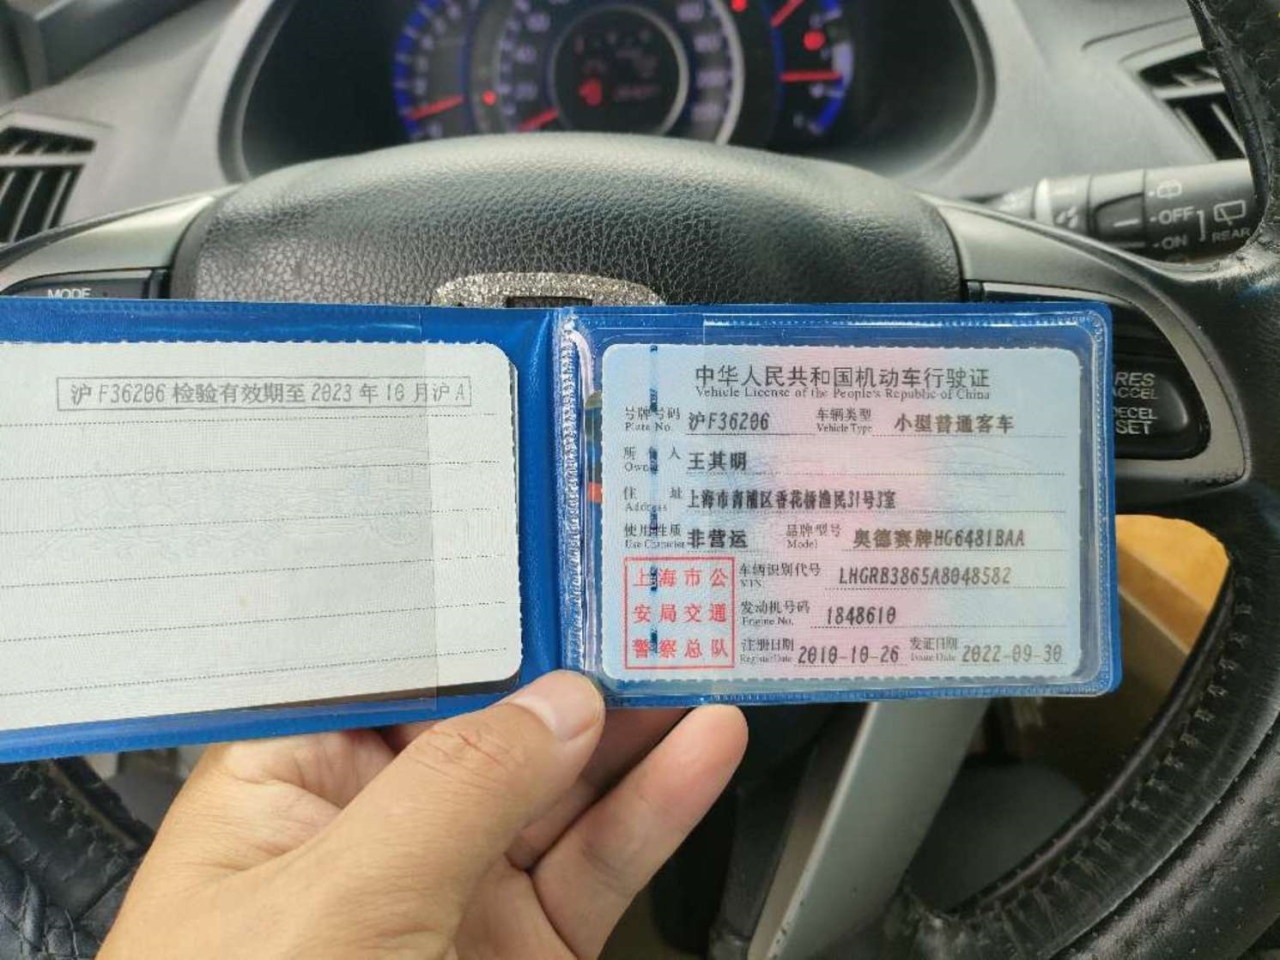 MODE
OFF
ON
REAR
RES
ACCEL
DECEL
SET
沪F36206 检验有效期至2023年10月沪A
中华人民共和国机动车行驶证
Vehicle License of the People's Republic of China
号牌号码 沪F36206 车辆类型 小型普通客车
Plate No. Vehicle Type
所有人 王其明
Owner
住址 上海市青浦区香花桥渔民31号3室
Address
使用性质 非营运 品牌型号 奥德赛牌HG6481BAA
Use Character Model
上海市公
安局交通
警察总队
车辆识别代号 LHGRB3865A8048582
VIN
发动机号码 1848610
Engine No.
注册日期 2010-10-26 发证日期 2022-09-30
Register Date Issue Date